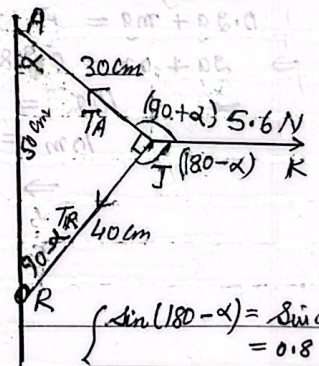 A
α
30cm
T_A
(90+α)
5.6 N
50 cm
J
(180-α)
K
T_R
40cm
90-α
R
{ sin(180-α) = Sin
= 0.8